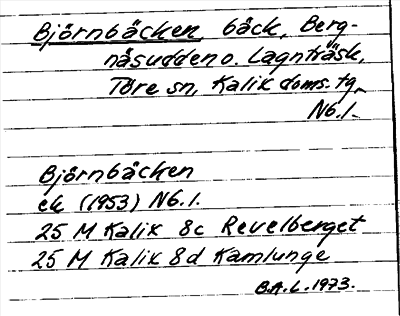 Björnbäcken, bäck, Berg-
näsudden o. Lagnträsk,
Töre sn, Kalix doms. tg,
Nb.l.
Björnbäcken
ek (1953) Nb.l.
25 M Kalix 8c Revelberget
25 M Kalix 8d Kamlunge
B.A.L. 1973.